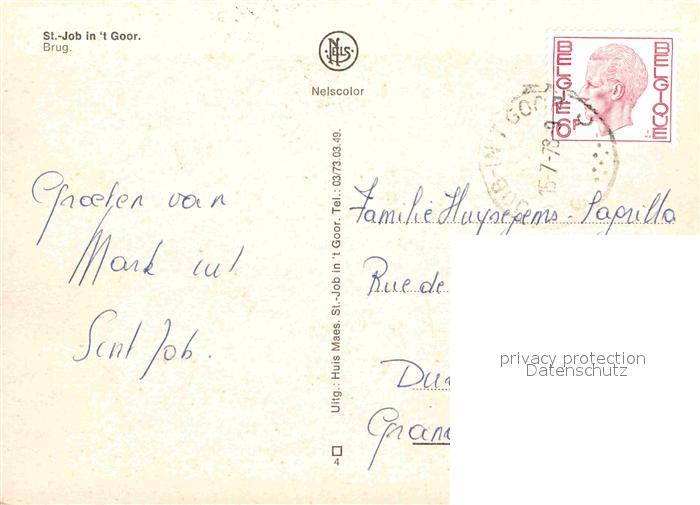 St.-Job in 't Goor.
Brug.
NELS
Nelscolor
BELGIE
BELGIQUE
6F
JOB-IN-'T GOOR
16-7-78-9
Groeten van
Mark uit
Sint Job.
Uitg.: Huis Maes. St.-Job in 't Goor. Tel.: 03/73.03.49.
4
Familie
Rue de
privacy protection
Datenschutz